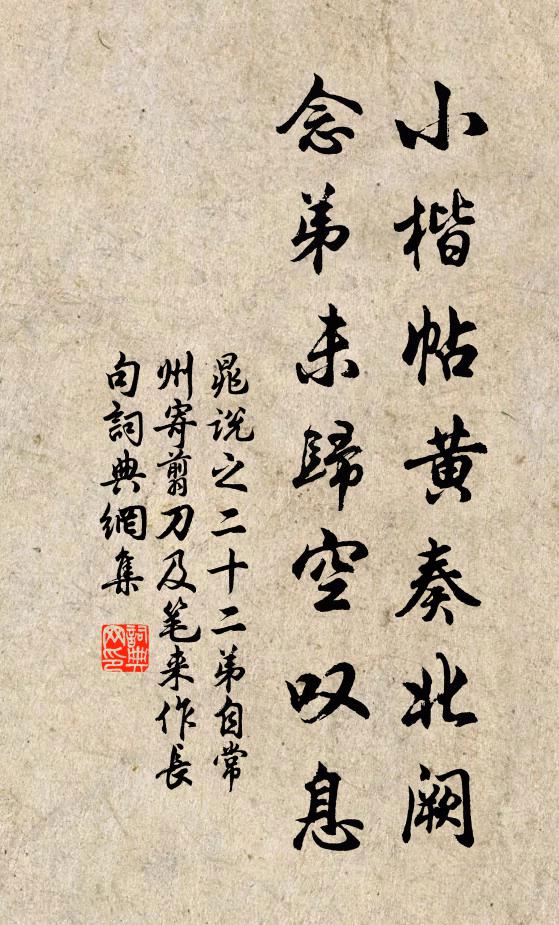 小楷帖黄奏北阙
念弟未歸空叹息
晁说之二十二弟自常
州寄剪刀及笔来作長
句詞典網集
詞典
网印